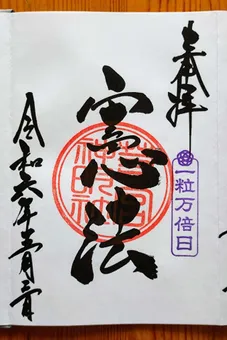 奉拝
一粒万倍日
憲法
若宮
神明社
令和六年五月三日